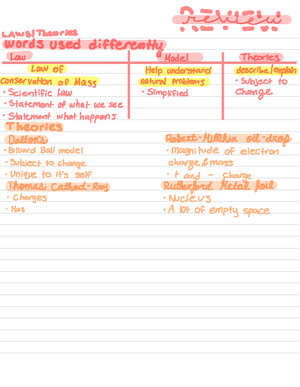 Review
Laws/Theories
words used differently
Law
Law of
Conservation of Mass
• Scientific Law
• Statement of what we see
• Statement what happens
Model
Help understand
natural problems
• Simplified
Theories
describe/explain
• Subject to
Change
Theories
Dalton's
• Billiard Ball model
• Subject to change
• Unique to it's self
Thomas Cathod-Ray
• Charges
• Has
Robert-Millikin oil-drop
• magnitude of electron
charge & mass
• + and - charge
Rutherford Metal foil
• Nucleus
• A lot of empty space